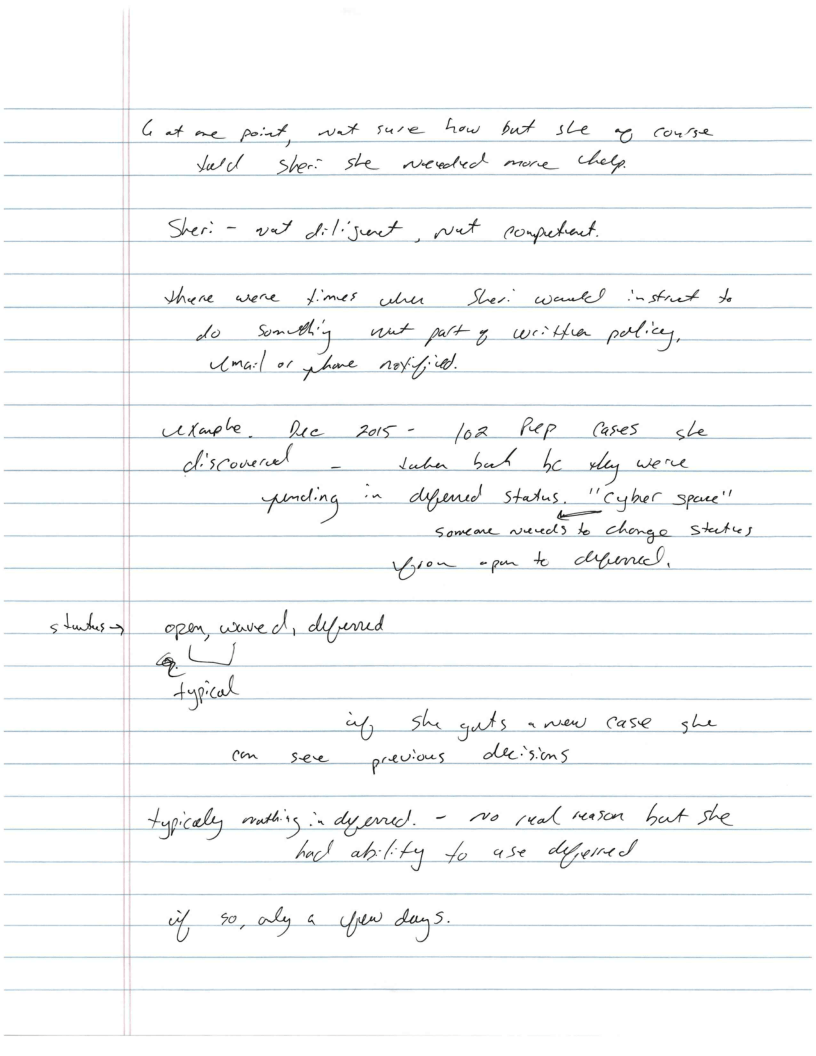 ↳ at one point, not sure how but she of course
told Sheri she needed more help.
Sheri - not diligent, not competent.
there were times when Sheri would instruct to
do something not part of written policy,
email or phone notified.
example. Dec 2015 - 102 Prep cases she
discovered - taken back bc they were
pending in deferred status. "Cyber space"
someone needs to change status
from open to deferred.
status → open, waved, deferred
typical
if she gets a new case she
can see previous decisions
typically nothing in deferred. - no real reason but she
had ability to use deferred
if so, only a few days.